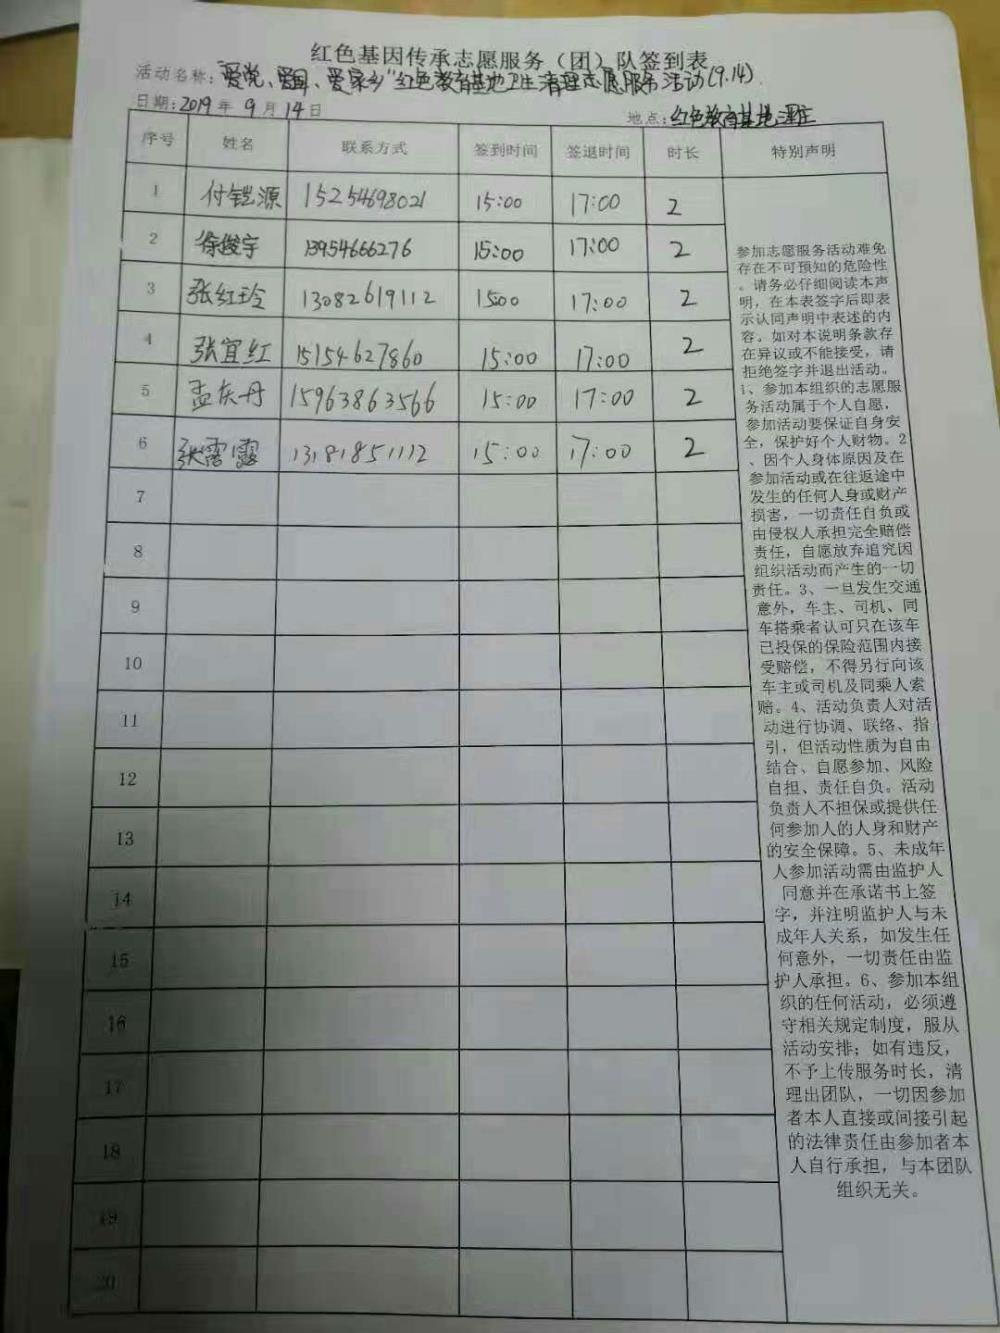 红色基因传承志愿服务（团）队签到表
活动名称："爱党、爱国、爱家乡"红色教育基地卫生清理志愿服务活动(9.14).
日期：2019年9月14日 地点：红色教育基地
序号 姓名 联系方式 签到时间 签退时间 时长 特别声明
1 付铠源 15254698021 15:00 17:00 2
2 徐俊宇 13954666276 15:00 17:00 2
3 张红玲 13082619112 15:00 17:00 2
4 张宜红 15154627860 15:00 17:00 2
5 孟庆丹 15963863566 15:00 17:00 2
6 张露露 13181851112 15:00 17:00 2
7
8
9
10
11
12
13
14
15
16
17
18
19
20
参加志愿服务活动难免
存在不可预知的危险性
。请务必仔细阅读本声
明，在本表签字后即表
示认同声明中表述的内
容。如对本说明条款存
在异议或不能接受，请
拒绝签字并退出活动。
1、参加本组织的志愿服
务活动属于个人自愿，
参加活动要保证自身安
全，保护好个人财物。2
、因个人身体原因及在
参加活动或在往返途中
发生的任何人身或财产
损害，一切责任自负或
由侵权人承担完全赔偿
责任，自愿放弃追究因
组织活动而产生的一切
责任。3、一旦发生交通
意外，车主、司机、同
车搭乘者认可只在该车
已投保的保险范围内接
受赔偿，不得另行向该
车主或司机及同乘人索
赔。4、活动负责人对活
动进行协调、联络、指
引，但活动性质为自由
结合、自愿参加、风险
自担、责任自负。活动
负责人不担保或提供任
何参加人的人身和财产
的安全保障。5、未成年
人参加活动需由监护人
同意并在承诺书上签
字，并注明监护人与未
成年人关系，如发生任
何意外，一切责任由监
护人承担。6、参加本组
织的任何活动，必须遵
守相关规定制度，服从
活动安排；如有违反，
不予上传服务时长，清
理出团队，一切因参加
者本人直接或间接引起
的法律责任由参加者本
人自行承担，与本团队
组织无关。